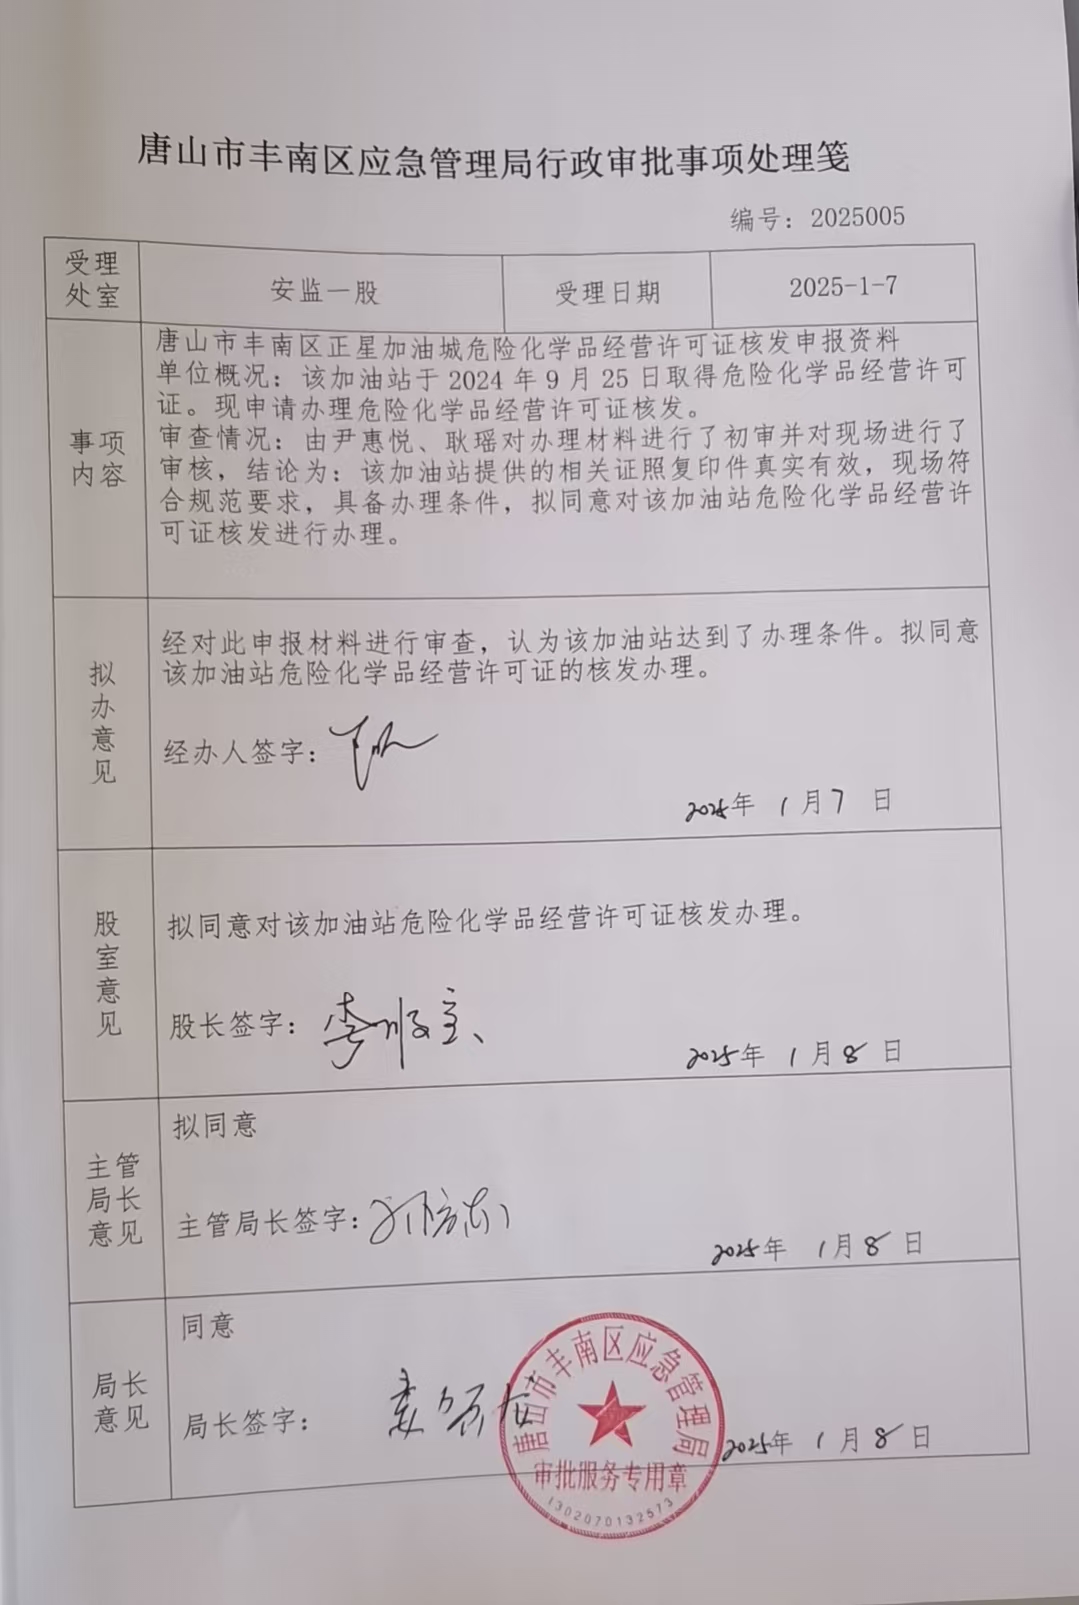 唐山市丰南区应急管理局行政审批事项处理笺
编号：2025005
受理
处室
安监一股
受理日期
2025-1-7
事项
内容
唐山市丰南区正星加油城危险化学品经营许可证核发申报资料
单位概况：该加油站于 2024 年 9 月 25 日取得危险化学品经营许可
证。现申请办理危险化学品经营许可证核发。
审查情况：由尹惠悦、耿瑶对办理材料进行了初审并对现场进行了
审核，结论为：该加油站提供的相关证照复印件真实有效，现场符
合规范要求，具备办理条件，拟同意对该加油站危险化学品经营许
可证核发进行办理。
拟
办
意
见
经对此申报材料进行审查，认为该加油站达到了办理条件。拟同意
该加油站危险化学品经营许可证的核发办理。
经办人签字：
2025年 1月7 日
股
室
意
见
拟同意对该加油站危险化学品经营许可证核发办理。
股长签字：李顺
2025年 1月8 日
主管
局长
意见
拟同意
主管局长签字：
2025年 1月8 日
局长
意见
同意
局长签字：
2025年 1月8 日
唐山市丰南区应急管理局
审批服务专用章
1302070132573